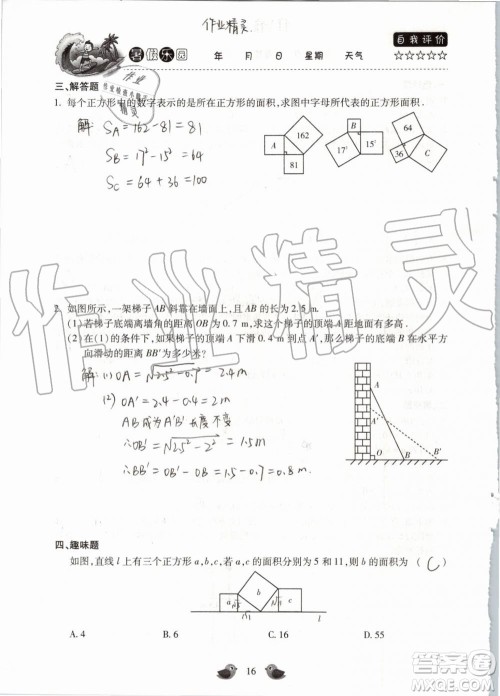 作业精灵
暑假乐园 年 月 日 星期 天气 自我评价 ☆☆☆☆☆
作业
精灵
三、解答题
1. 每个正方形中的数字表示的是所在正方形的面积,求图中字母所代表的正方形面积.
解: S_A = 162 - 81 = 81
S_B = 17² - 15² = 64
S_C = 64 + 36 = 100
162 A 81
B 17² 15²
64 36 C
作业精灵
2. 如图所示,一架梯子 AB 斜靠在墙面上,且 AB 的长为 2.5 m.
(1) 若梯子底端离墙角的距离 OB 为 0.7 m,求这个梯子的顶端 A 距地面有多高.
(2) 在(1)的条件下,如果梯子的顶端 A 下滑 0.4 m 到点 A′,那么梯子的底端 B 在水平方
向滑动的距离 BB′ 为多少米?
解: (1) OA = √2.5² - 0.7² = 2.4m
(2) OA′ = 2.4 - 0.4 = 2m
AB成为A′B′长度不变
∴ OB′ = √2.5² - 2² = 1.5m
∴ BB′ = OB′ - OB = 1.5 - 0.7 = 0.8m
A
A′
O B B′
四、趣味题
如图,直线 l 上有三个正方形 a,b,c,若 a,c 的面积分别为 5 和 11,则 b 的面积为 ( C )
a b c l
A. 4 B. 6 C. 16 D. 55
16
答案圈